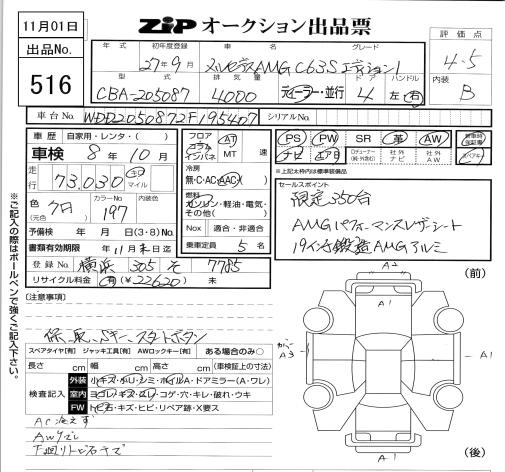 11月01日
ZIP オークション出品票
出品No.
516
年式 初年度登録 車名 グレード
27年9月 AMG C63S エディション1
4.5
型式 排気量 ドア ハンドル
CBA-205087 4000 ディーラー・並行 4 左・右
内装
B
車台No. WDD2050872F195407 シリアルNo.
車歴 自家用・レンタ・( )
車検 8年10月
走行 73,030 キロ マイル
色(元色) クロ カラーNo. 197 内装色
予備検 年 月 日(3・8)No.
書類有効期限 年11月末日迄
登録No. 横浜 305 そ 7785
リサイクル料金 (有)(¥22620) 未
フロア コラム インパネ AT MT 速
冷房 無・C・AC・AAC
燃料 ガソリン・軽油・電気・その他( )
Nox 適合・非適合
乗車定員 5 名
PS PW SR 革 AW
ナビ エアB 社外ナビ 社外AW
※上記太枠内は標準装備
セールスポイント
限定350台
AMGパフォーマンスレザーシート
19インチ鍛造AMGアルミ
※ご記入の際はボールペンで強くご記入下さい。
(注意事項)
保、取、Sキー、スタートボタン
スペアタイヤ[有] ジャッキ工具[有] AWロックキー[有] ある場合のみ○
長さ cm 幅 cm 高さ cm (車検証上の寸法)
検査記入
外装 小キズ・ホリ・シミ・ホイルA・ドアミラー(A・ワレ)
室内 ヨゴレ・キズ・スレ・コゲ・穴・キレ・破れ・ウキ
FW トビ石・キズ・ヒビ・リペア跡・X要ス
AC冷えず
AWスレ
下廻りトビ石キズ
(前)
A2
A1
A3
A1
A1
(後)